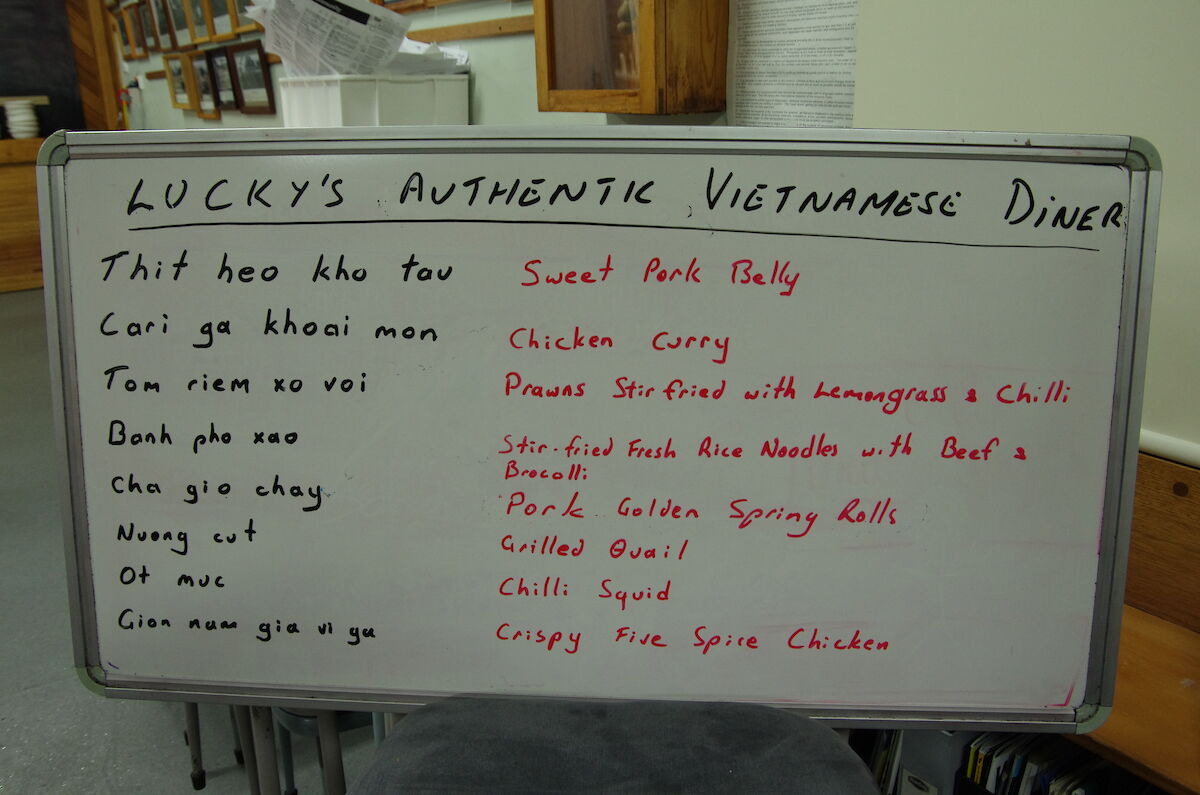 LUCKY'S AUTHENTIC VIETNAMESE DINER
Thit heo kho tau Sweet Pork Belly
Cari ga khoai mon Chicken Curry
Tom riem xo voi Prawns Stir fried with Lemongrass & Chilli
Banh pho xao Stir-fried Fresh Rice Noodles with Beef &
Brocolli
Cha gio chay Pork Golden Spring Rolls
Nuong cut Grilled Quail
Ot muc Chilli Squid
Gion nam gia vi ga Crispy Five Spice Chicken